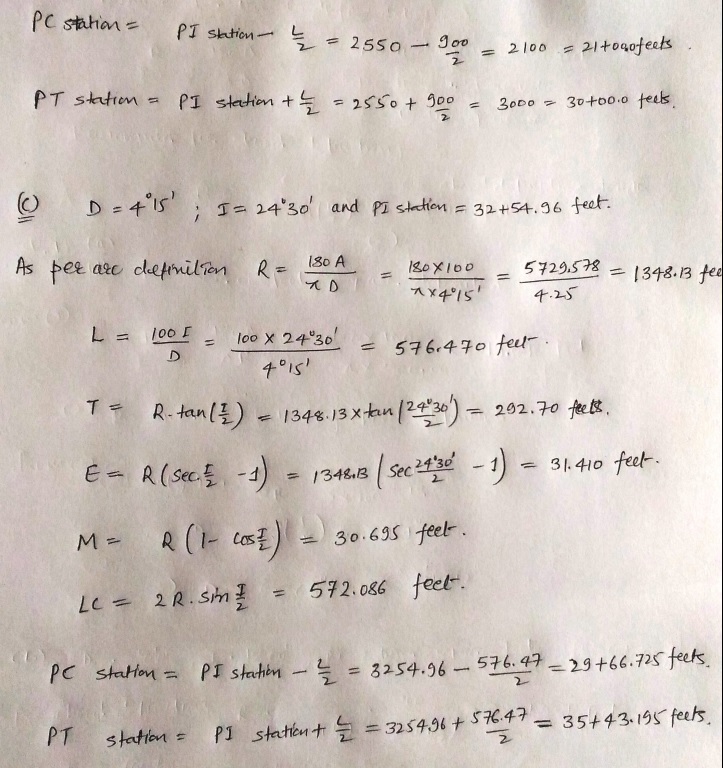 PC station = PI station - L/2 = 2550 - 900/2 = 2100 = 21+00.0 feets.
PT station = PI station + L/2 = 2550 + 900/2 = 3000 = 30+00.0 feets.
(C) D = 4°15' ; I = 24°30' and PI station = 32+54.96 feet.
As per arc definition R = 180 A / π D = 180 X 100 / π x 4°15' = 5729.578 / 4.25 = 1348.13 fee
L = 100 I / D = 100 X 24°30' / 4°15' = 576.470 feet.
T = R. tan(I/2) = 1348.13 x tan (24°30'/2) = 292.70 feets.
E = R (sec. I/2 - 1) = 1348.13 (sec 24°30'/2 - 1) = 31.410 feet.
M = R (1 - cos I/2) = 30.695 feet.
LC = 2 R. sin I/2 = 572.086 feet.
PC station = PI station - L/2 = 3254.96 - 576.47/2 = 29+66.725 feets.
PT station = PI station + L/2 = 3254.96 + 576.47/2 = 35+43.195 feets.